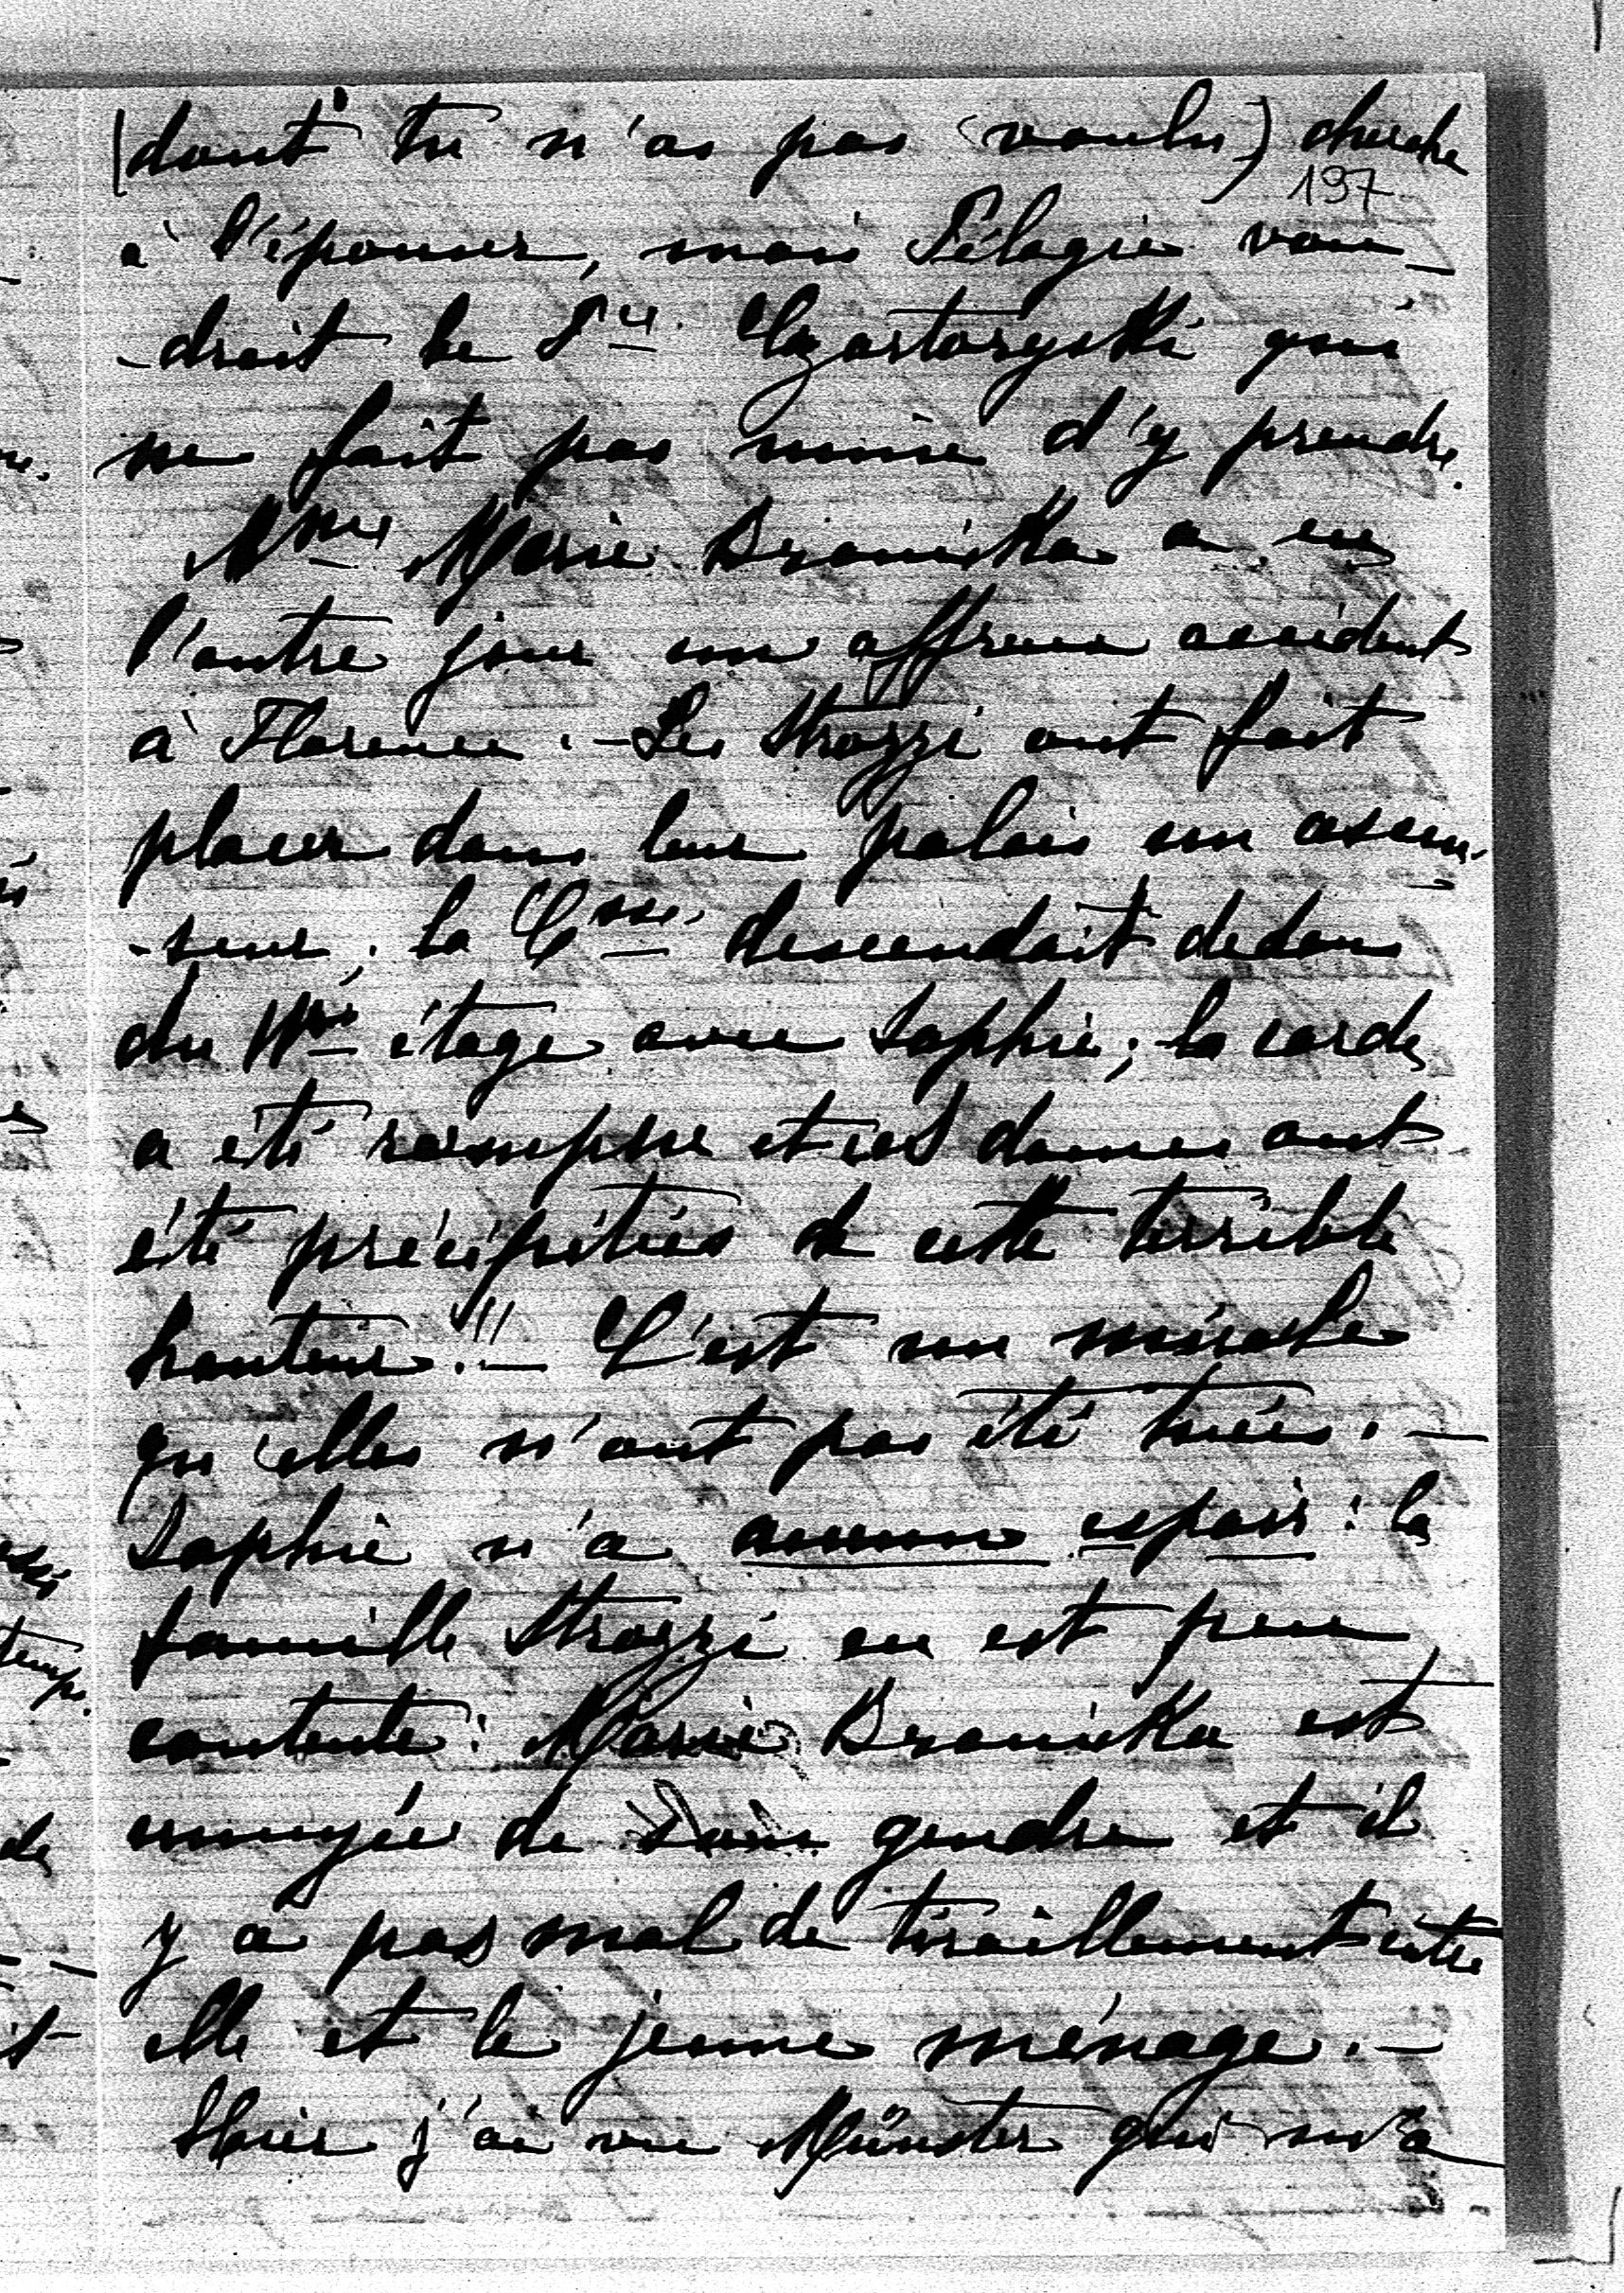 (dont tu n'as pas voulu) cherche
197
à l'épouser, mais Pélagie vou-
-drait le Pce Czartoryski qui
ne fait pas mine d'y prendre.
Mme Marie Branicka a eu
l'autre jour un affreux accident
à Florence. - Les Strozzi ont fait
placer dans leur palais un ascen-
-seur; la Csse descendait dedans
du étage avec Sophie; la corde
a été rompue et ces dames ont
été précipitées de cette terrible
hauteur!!! - C'est un miracle
qu'elles n'ont pas été tuées. -
Sophie n'a aucun espoir: la
famille Strozzi en est peu
contente: Marie Branicka est
ennuyée de son gendre et il
y a pas mal de tiraillement entre
elle et le jeune ménage. -
Hier j'ai vu Münster qui m'a